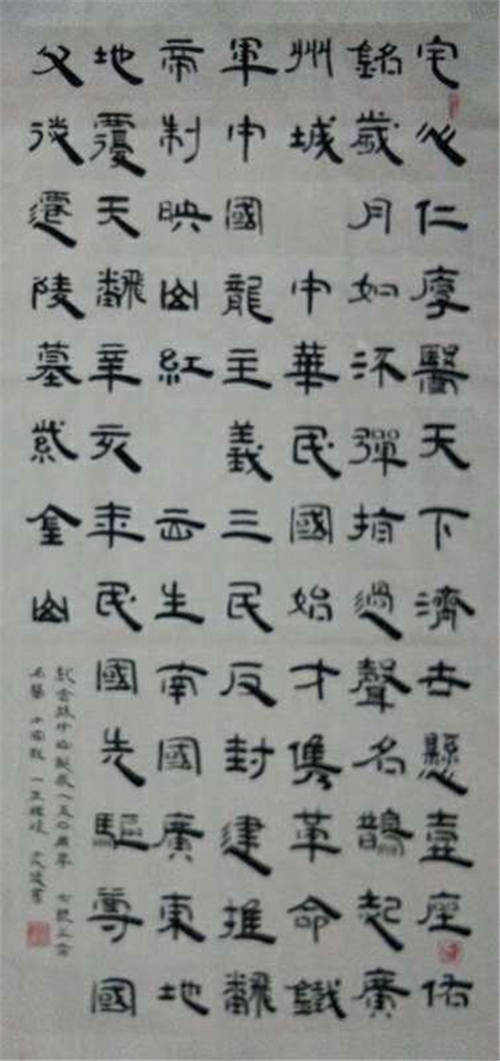 宅心仁厚醫天下濟世懸壺座佑
銘歲月如流彈指過聲名鵲起廣
州城 中華民國始才雋革命鐵
軍中國 龍主義三民反封建推翻
帝制映山紅 正生南國廣東地
地覆天翻辛亥来民國先驅尊國
父後遷陵墓紫金山
紀念孫中山誕辰一五〇周年